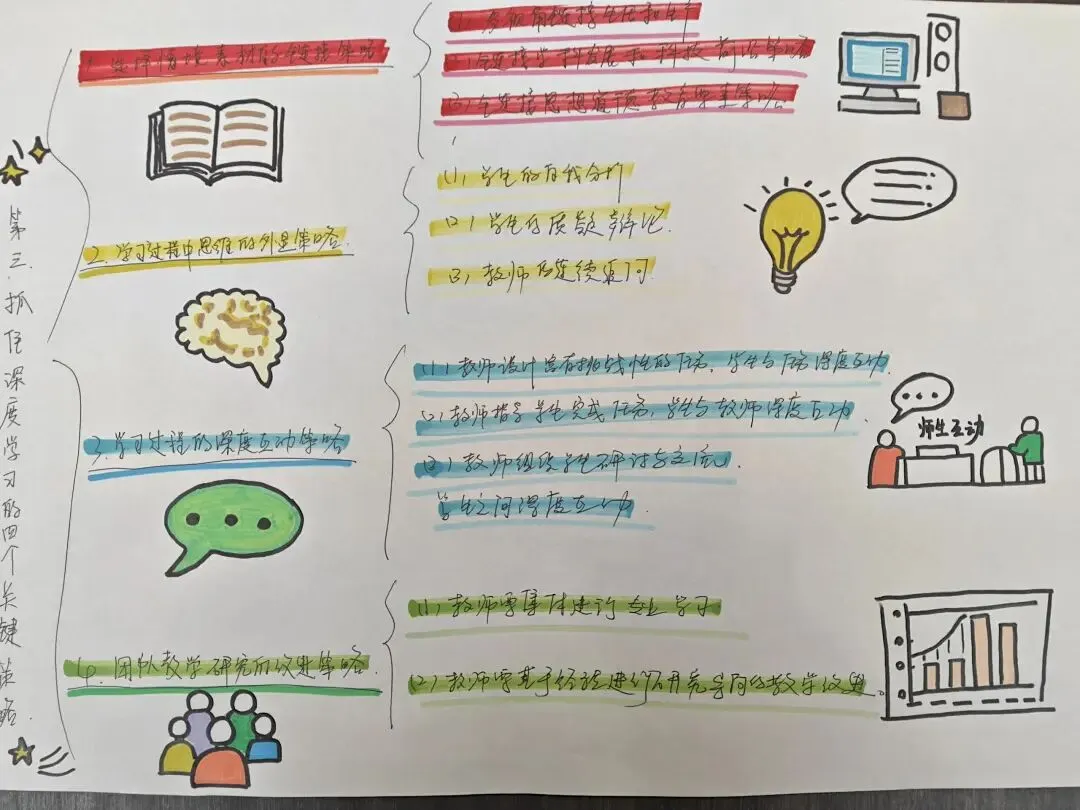 第三.抓住深度学习的四个关键策略.
1.选择情境素材的全链接策略
(1)多取角链接生活和生产
(2)全链接学科发展和科技前沿策略
(3)全连接思想道德教育要素策略
2.学习过程中思维的外显策略.
(1)学生的自我分析
(2)学生的质疑辩论.
(3)教师的连续追问.
3.学习过程的深度互动策略
(1)教师设计富有挑战性的任务,学生与任务深度互动.
(2)教师指导学生完成任务,学生与教师深度互动.
(3)教师组织学生研讨与交流.
学生之间深度互动.
师生互动
4.团队教学研究的改进策略.
(1)教师要集体进行专业学习
(2)教师要基于经验进行研究导向的教学改进.